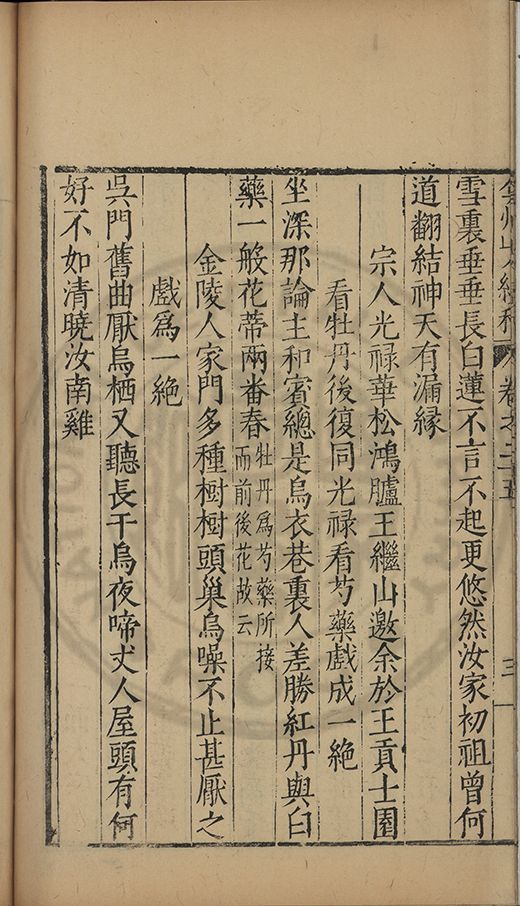 弇州山人續稿 卷之二十五 三
雪裏垂垂長白蓮不言不起更悠然汝家初祖曾何
道翻結神天有漏縁
宗人光禄華松鴻臚王繼山邀余於王貢士園
看牡丹後復同光禄看芍藥戲成一絶
坐深那論主和賓總是烏衣巷裏人差勝紅丹與白
藥一般花蒂兩番春牡丹為芍藥所接
而前後花故云
金陵人家門多種樹樹頭巢烏噪不止甚厭之
戲爲一絶
吳門舊曲厭烏栖又聽長干烏夜啼丈人屋頭有何
好不如清曉汝南雞